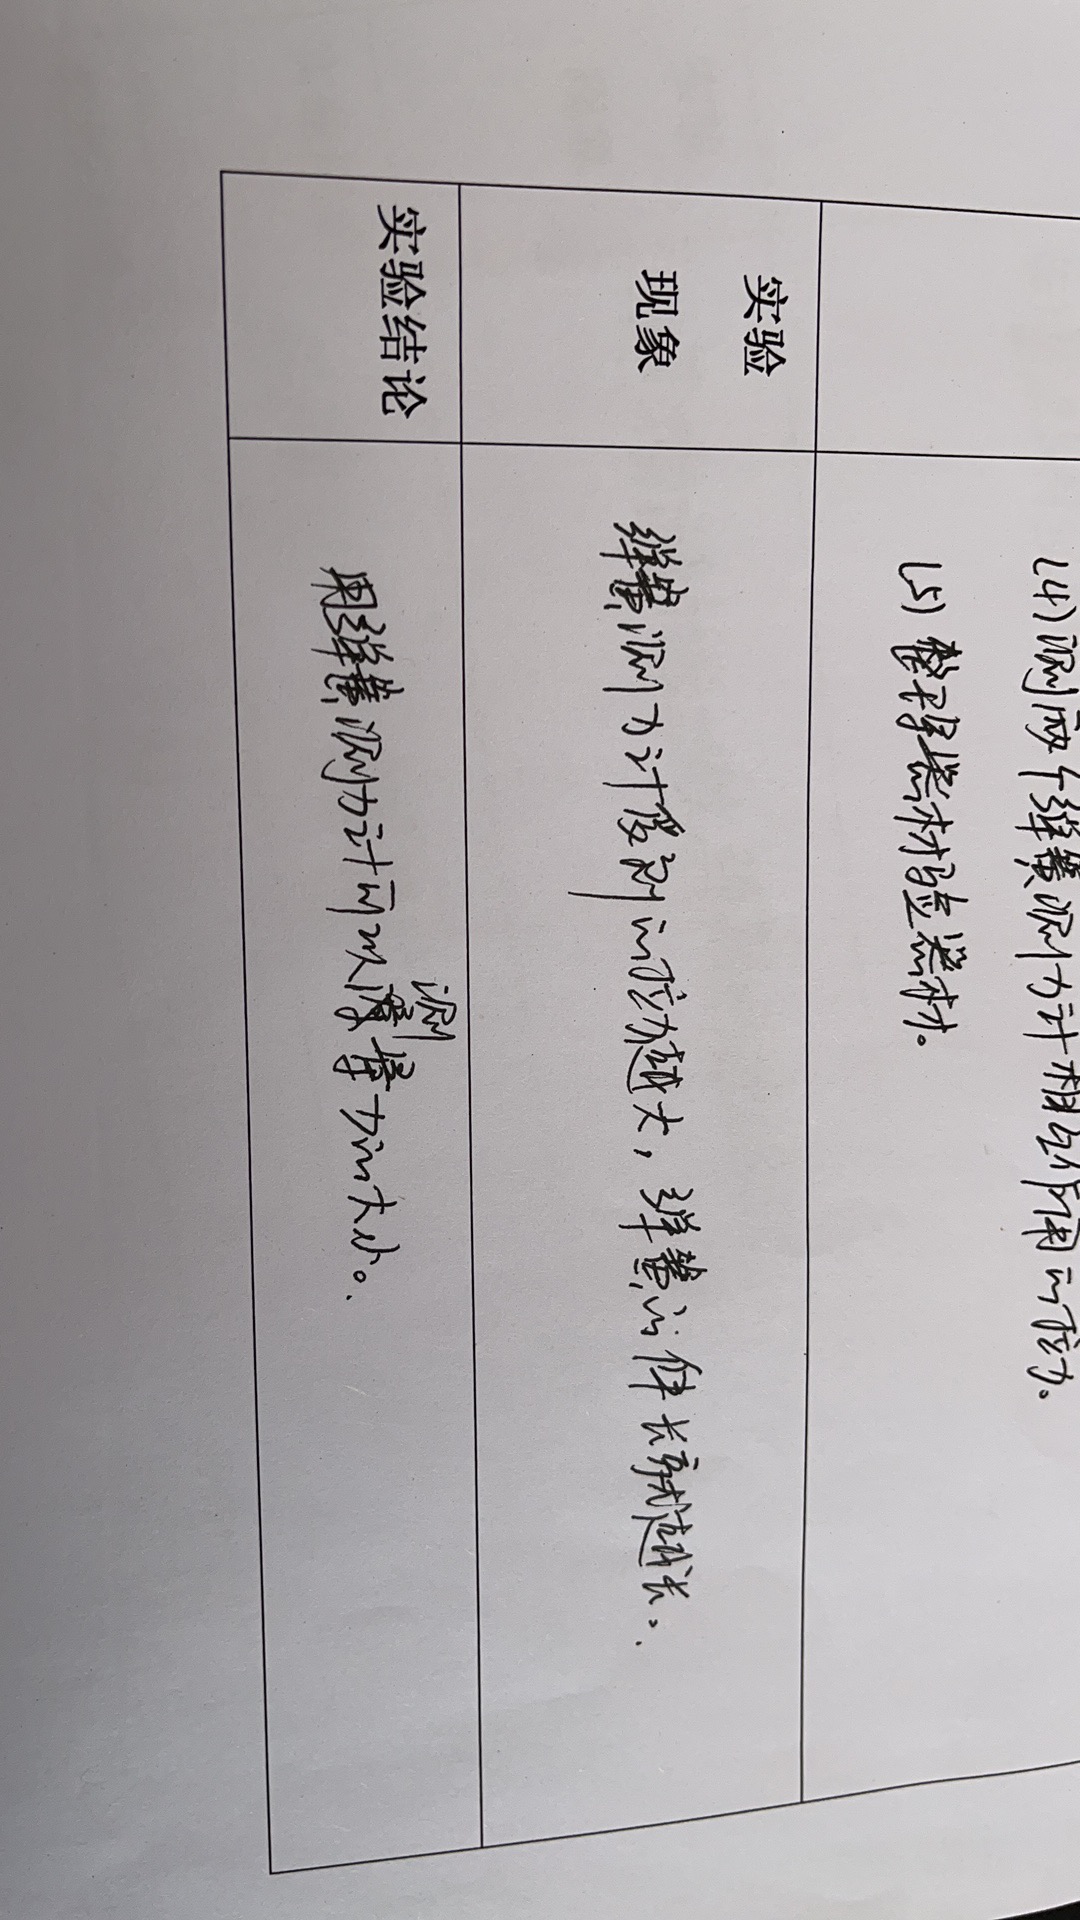 (4)测两个弹簧测力计相互作用的拉力。
(5)整理器材验器材。
实验
现象
弹簧测力计受到的拉力越大，弹簧的伸长就越长。
实验结论
用弹簧测力计可以测量力的大小。